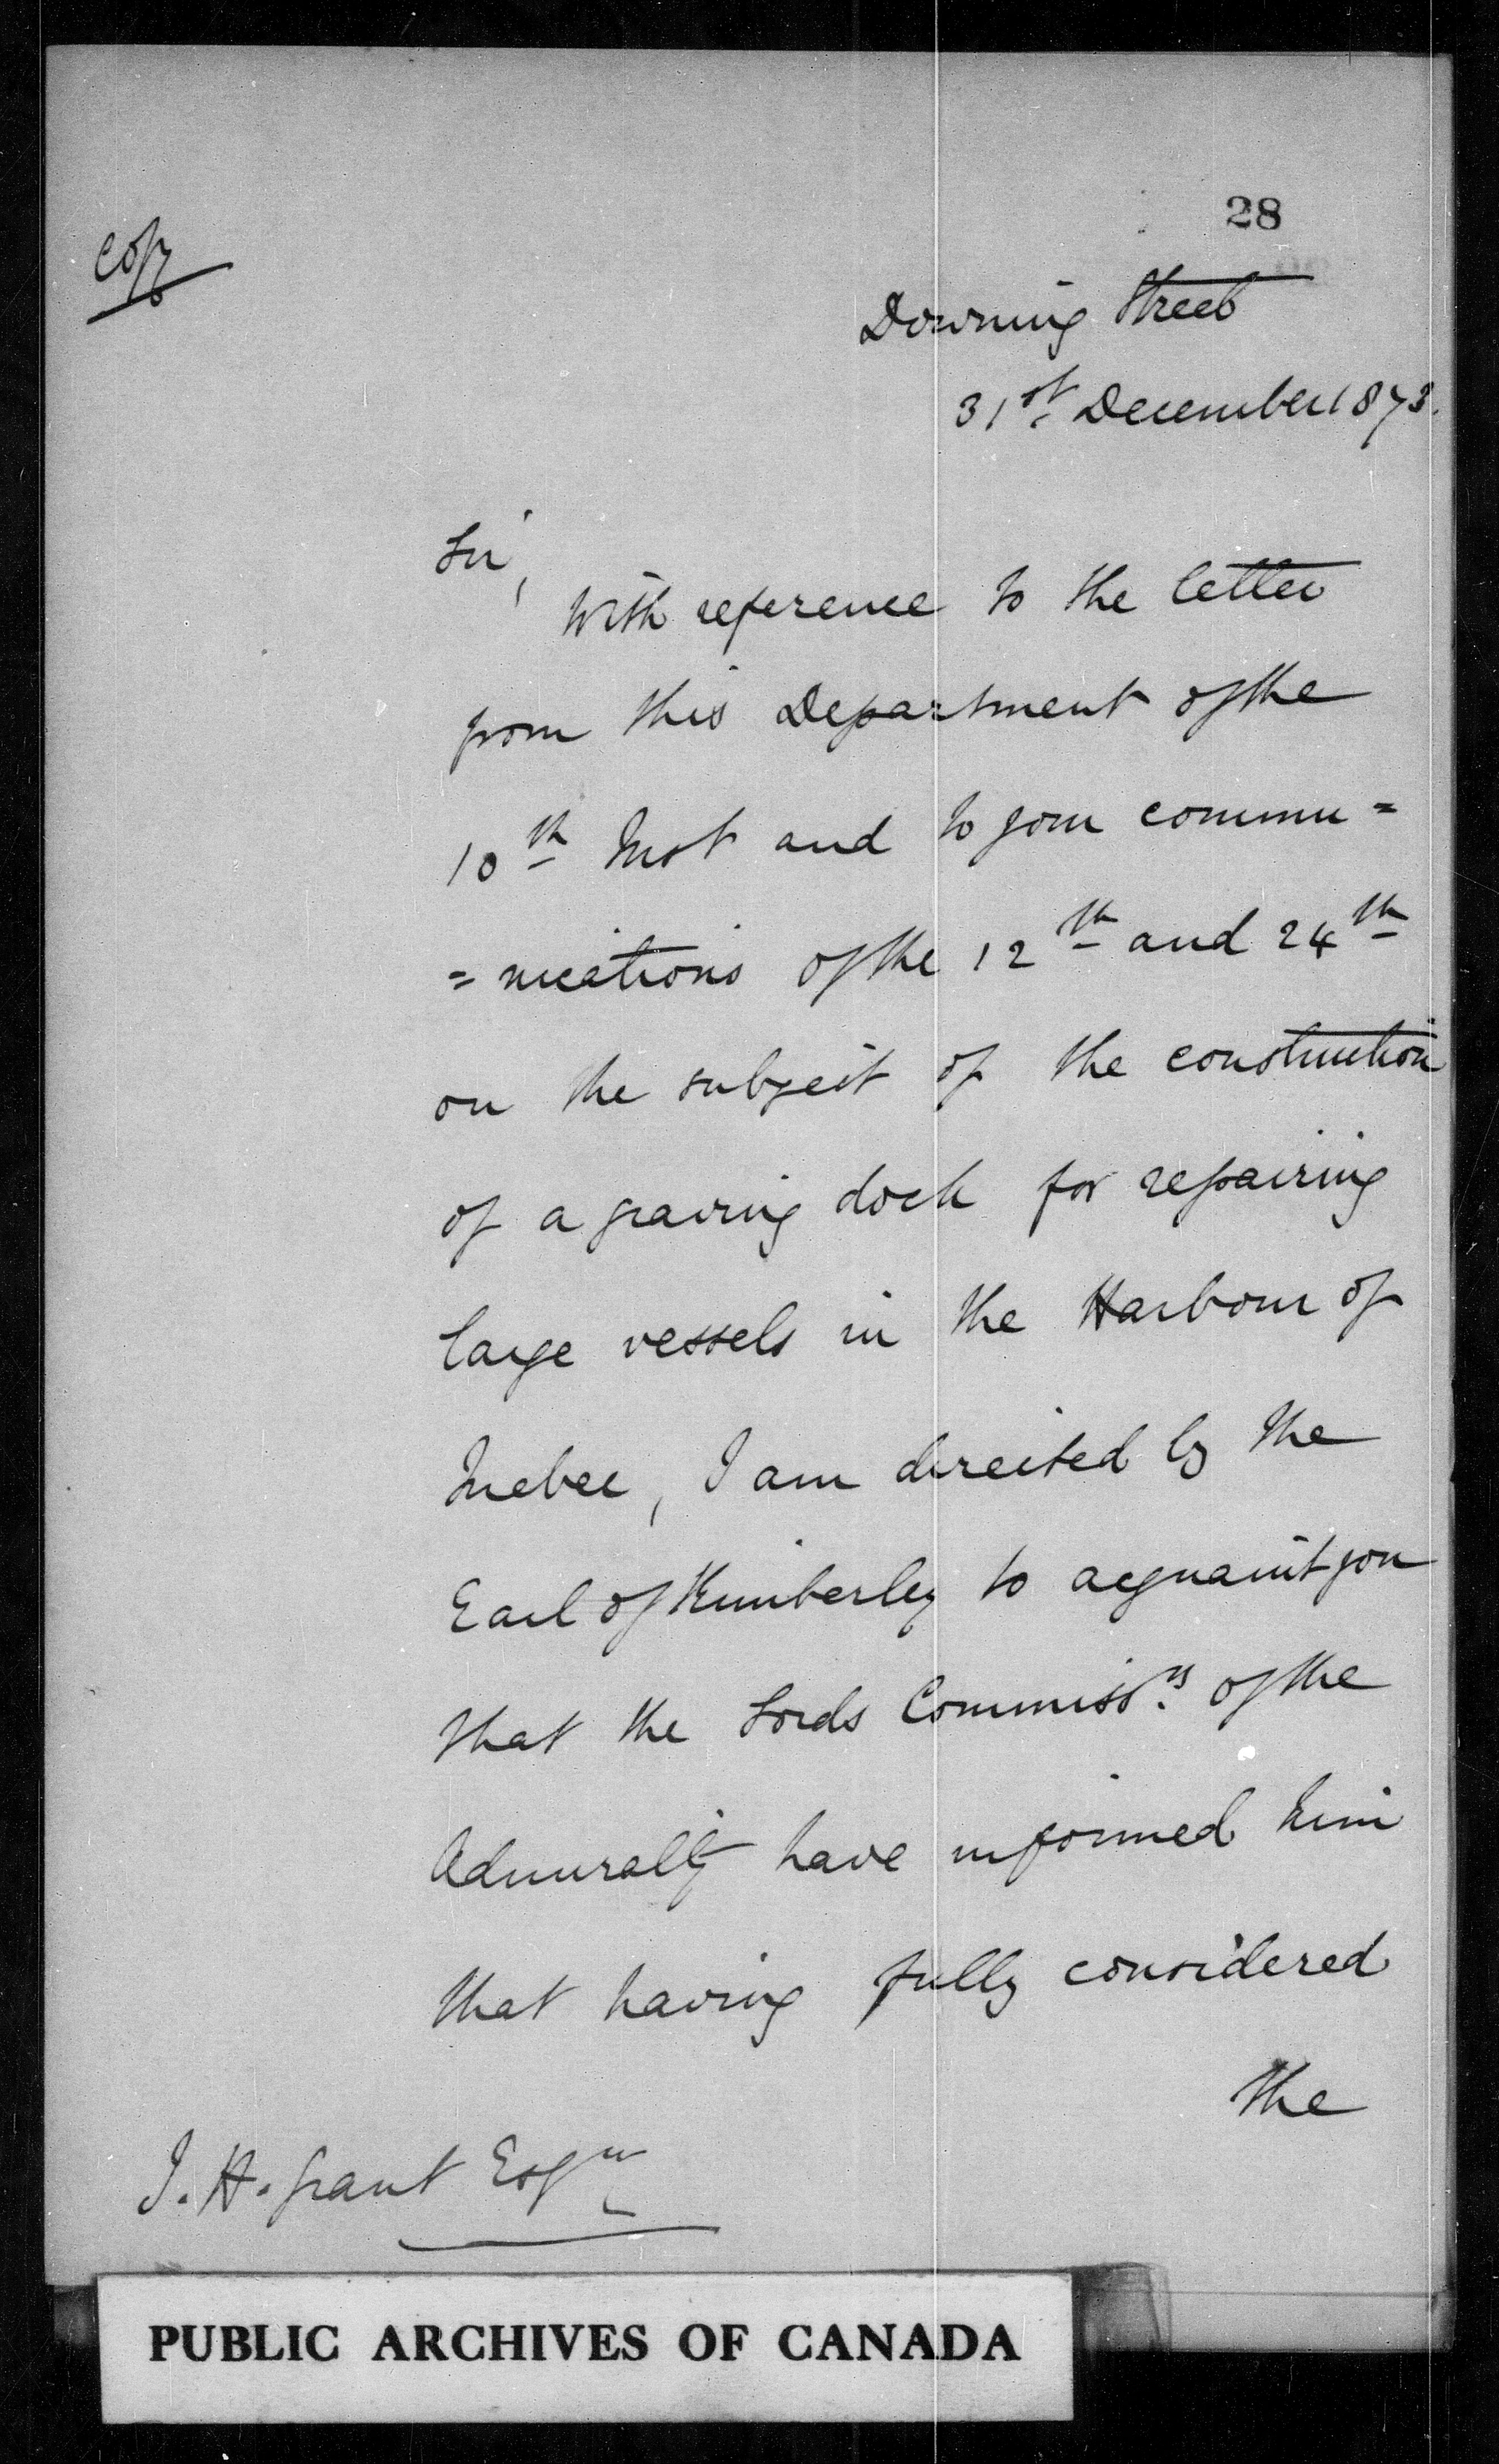 28
Copy
Downing Street
31st December 1873.
Sir,
With reference to the letter
from this Department of the
10th Inst and to your commu=
=nications of the 12th and 24th
on the subject of the construction
of a graving dock for repairing
large vessels in the Harbour of
Quebec, I am directed by the
Earl of Kimberley to acquaint you
that the Lords Commissrs of the
Admiralty have informed him
that having fully considered
the
J. H. Grant Esqre
PUBLIC ARCHIVES OF CANADA